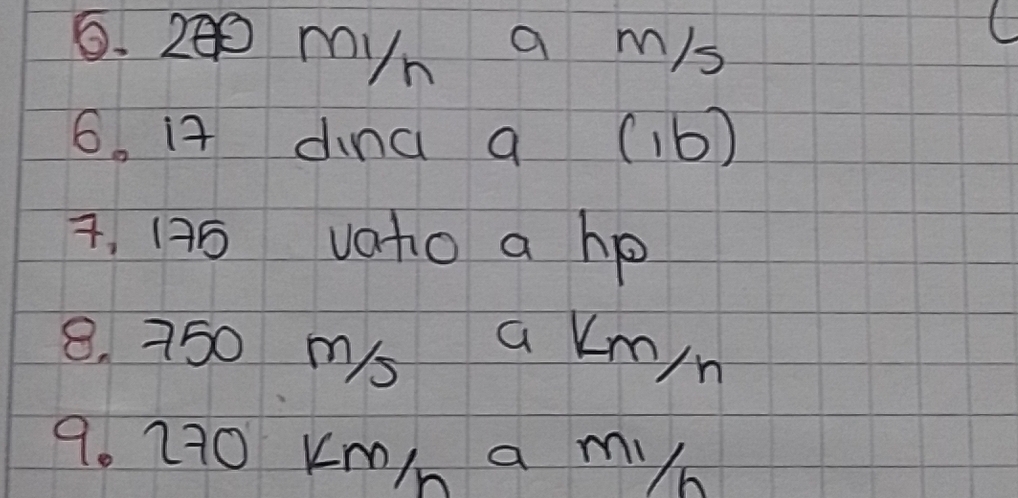 5. 200 mi/h a m/s
6. 17 dina a (lb)
7. 175 vatio a hp
8. 750 m/s a Km/h
9. 270 Km/h a mi/h